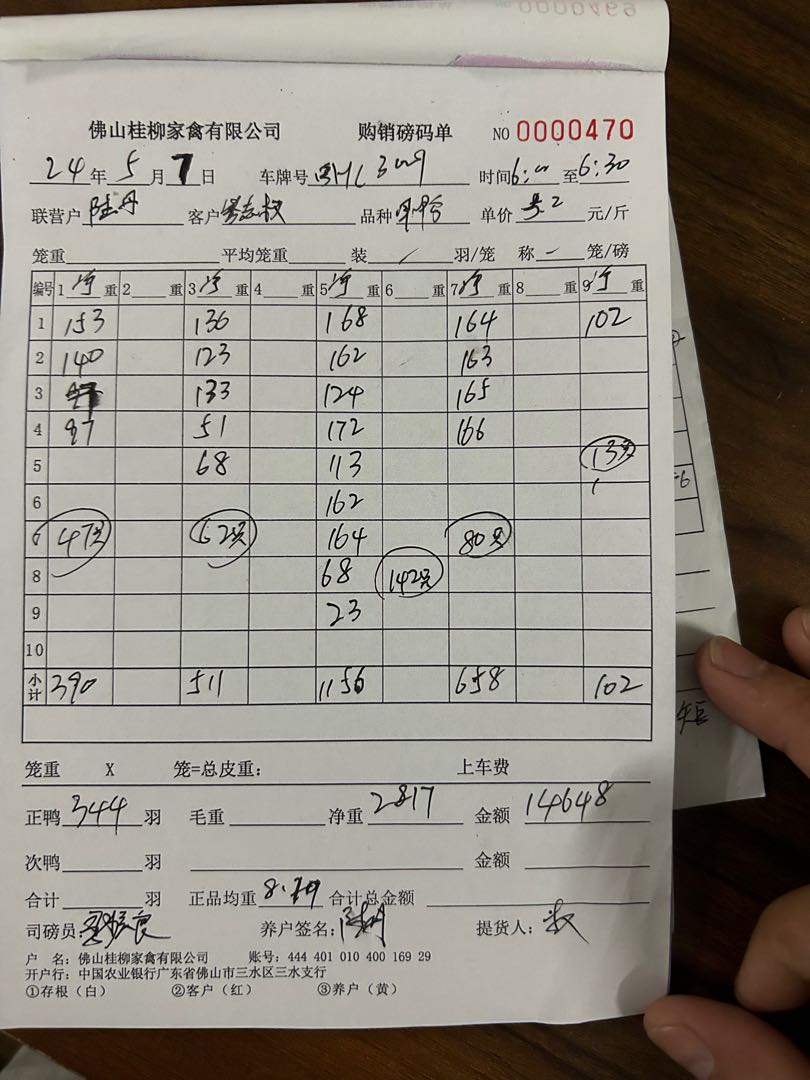 0000469
佛山桂柳家禽有限公司 购销磅码单 NO 0000470
24年 5月 7日 车牌号 时间 6:00 至 6:30
联营户 陆丹 客户 品种 单价 5.2 元/斤
笼重 平均笼重 装 / 羽/笼 称 一 笼/磅
编号 1 净 重 2 重 3 净 重 4 重 5 净 重 6 重 7 净 重 8 重 9 净 重
1 153 136 168 164 102
2 140 123 162 163
3 133 124 165
4 97 51 172 166
5 68 113 13只
6 162
7 47只 62只 164 80只
8 68 142只
9 23
10
小计 390 511 1156 658 102
笼重 X 笼=总皮重: 上车费
正鸭 344 羽 毛重 净重 2817 金额 14648
次鸭 羽 金额
合计 羽 正品均重 8.19 合计总金额
司磅员: 养户签名: 提货人:
户 名: 佛山桂柳家禽有限公司 账号: 444 401 010 400 169 29
开户行: 中国农业银行广东省佛山市三水区三水支行
①存根(白) ②客户(红) ③养户(黄)